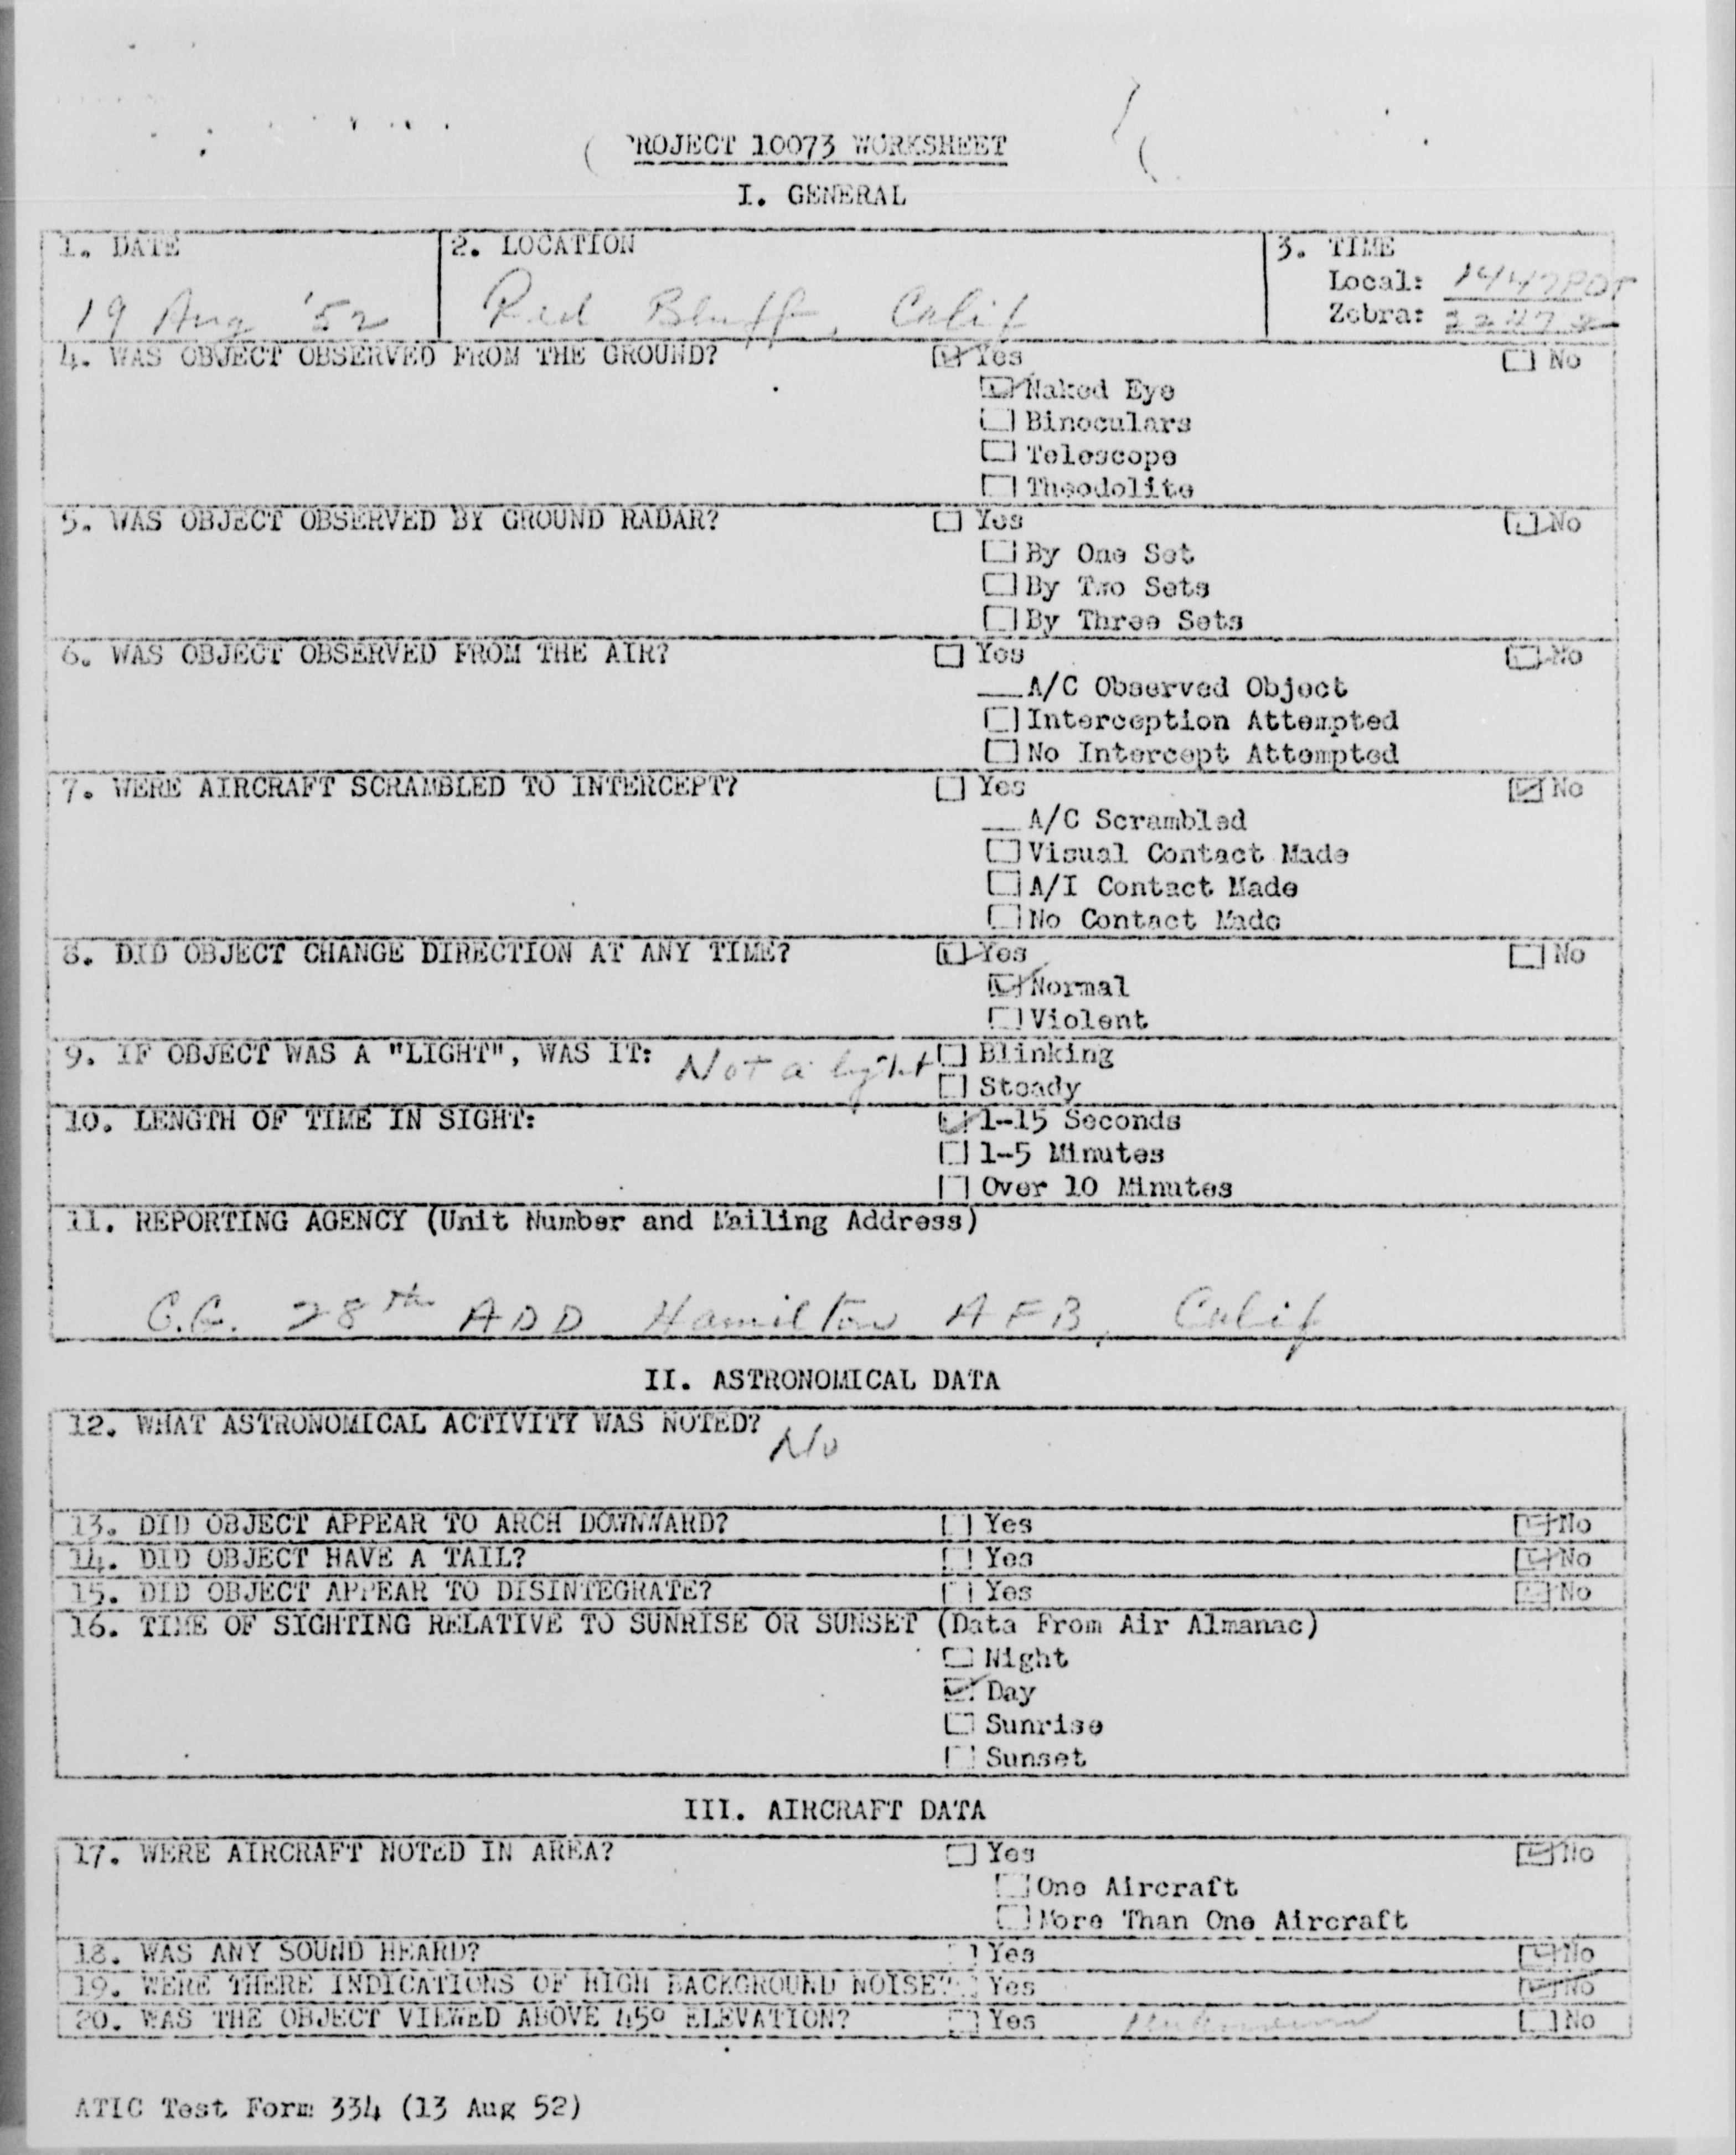 PROJECT 10073 WORKSHEET
I. GENERAL
1. DATE
19 Aug '52
2. LOCATION
Red Bluff, Calif
3. TIME
Local: 1447 PDT
Zebra: 2247 Z
4. WAS OBJECT OBSERVED FROM THE GROUND? ☑ Yes ☐ No
☑ Naked Eye
☐ Binoculars
☐ Telescope
☐ Theodolite
5. WAS OBJECT OBSERVED BY GROUND RADAR? ☐ Yes ☑ No
☐ By One Set
☐ By Two Sets
☐ By Three Sets
6. WAS OBJECT OBSERVED FROM THE AIR? ☐ Yes ☑ No
__ A/C Observed Object
☐ Interception Attempted
☐ No Intercept Attempted
7. WERE AIRCRAFT SCRAMBLED TO INTERCEPT? ☐ Yes ☑ No
__ A/C Scrambled
☐ Visual Contact Made
☐ A/I Contact Made
☐ No Contact Made
8. DID OBJECT CHANGE DIRECTION AT ANY TIME? ☑ Yes ☐ No
☑ Normal
☐ Violent
9. IF OBJECT WAS A "LIGHT", WAS IT: Not a light ☐ Blinking
☐ Steady
10. LENGTH OF TIME IN SIGHT: ☑ 1-15 Seconds
☐ 1-5 Minutes
☐ Over 10 Minutes
11. REPORTING AGENCY (Unit Number and Mailing Address)
C.G. 28th ADD Hamilton AFB, Calif
II. ASTRONOMICAL DATA
12. WHAT ASTRONOMICAL ACTIVITY WAS NOTED? No
13. DID OBJECT APPEAR TO ARCH DOWNWARD? ☐ Yes ☑ No
14. DID OBJECT HAVE A TAIL? ☐ Yes ☑ No
15. DID OBJECT APPEAR TO DISINTEGRATE? ☐ Yes ☑ No
16. TIME OF SIGHTING RELATIVE TO SUNRISE OR SUNSET (Data From Air Almanac)
☐ Night
☑ Day
☐ Sunrise
☐ Sunset
III. AIRCRAFT DATA
17. WERE AIRCRAFT NOTED IN AREA? ☐ Yes ☑ No
☐ One Aircraft
☐ More Than One Aircraft
18. WAS ANY SOUND HEARD? ☐ Yes ☑ No
19. WERE THERE INDICATIONS OF HIGH BACKGROUND NOISE? ☐ Yes ☑ No
20. WAS THE OBJECT VIEWED ABOVE 45° ELEVATION? ☐ Yes Unknown ☐ No
ATIC Test Form 334 (13 Aug 52)